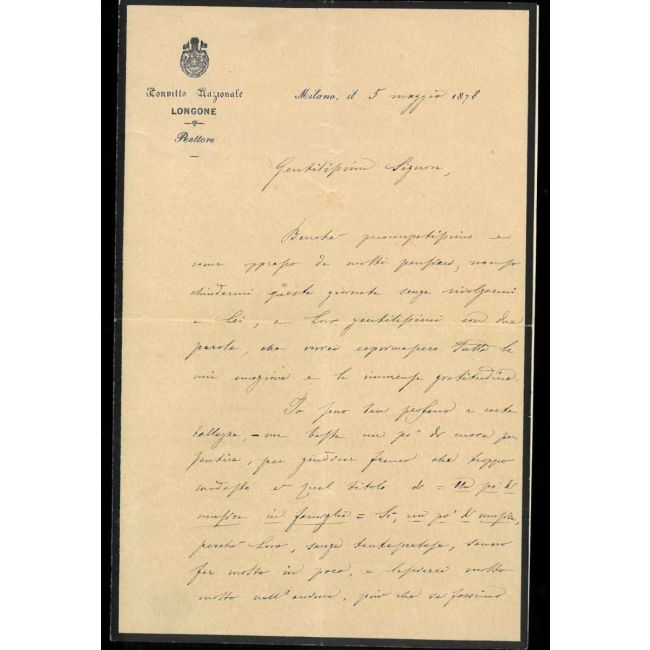 Convitto Nazionale
LONGONE
Rettore
Milano, il 5 maggio 1878
Gentilissimo Signore,
Benchè preoccupatissimo e
come oppresso da molti pensieri, non so
chiudermi questa giornata senza rivolgermi
a Lei, e Loro gentilissimi con due
parole, che vorrei esprimessero tutta la
mia emozione e la immensa gratitudine.
Io sono ben profano a certe
bellezze, - ma basta un po' di cuore per
sentire, per giudicar franco che troppo
modesto è quel titolo di = un po' di
musica in famiglia = Sì, un po' di musica,
perchè Loro, senza pretesa, sanno
far molto in poco, e lasciarci molto
molto nell'anima, più che se fossimo